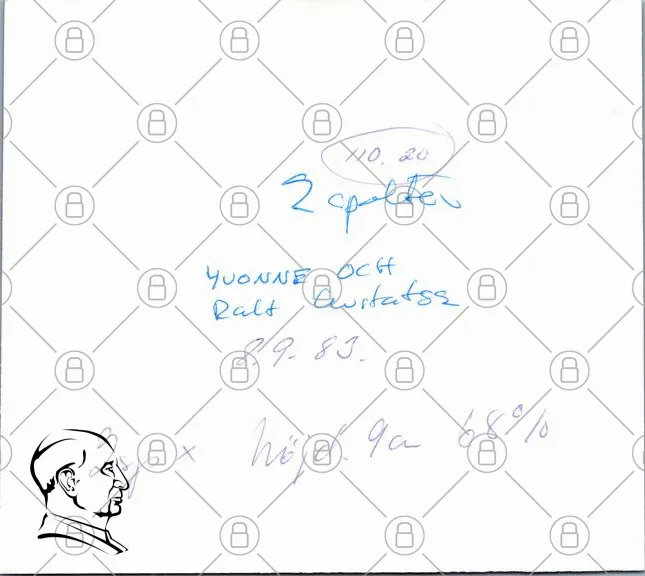 110. 20
2 spalten
YVONNE OCH
Ralf Gustafss
8.9.83.
x höjd. 9cm 68%